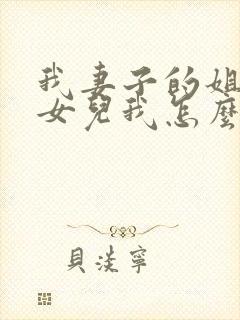 我妻子的姐
女兒我怎麼
貝淡寧